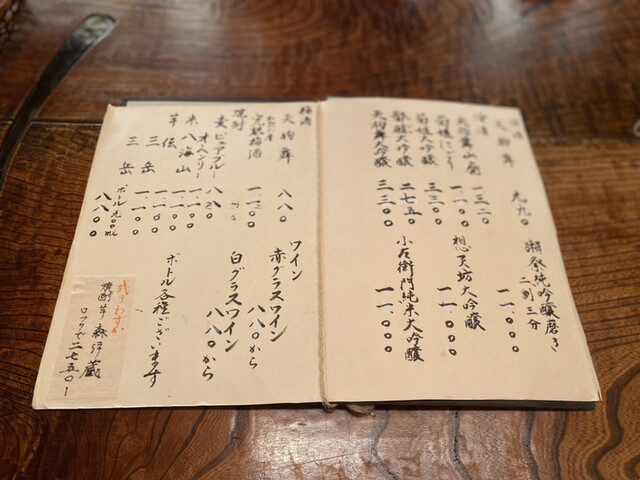 天狗舞 九九〇
冷酒
天狗舞山廃 一三二〇
菊姫にごり 一一〇〇
菊姫大吟醸 三三〇〇
大吟醸 二七五〇
天狗舞大吟醸 三三〇〇
獺祭純吟醸磨き
二割三分
一一〇〇〇
想天坊大吟醸
一一〇〇〇
小左衛門純米大吟醸
一一〇〇〇
梅酒
天狗舞 八八〇
完熟梅酒 一一〇〇
焼酎
麦 ピュアブルー 八八〇
オーヘンリー 一一〇〇
米 八海山 一一〇〇
芋 伝 一一〇〇
三岳 一一〇〇
三岳 ボトル九〇〇ml 八八〇〇
ワイン
赤グラスワイン
八八〇から
白グラスワイン
八八〇から
ボトル各種ございます
残りわずか
焼酎 芋 森伊蔵
ロックで二七五〇ー